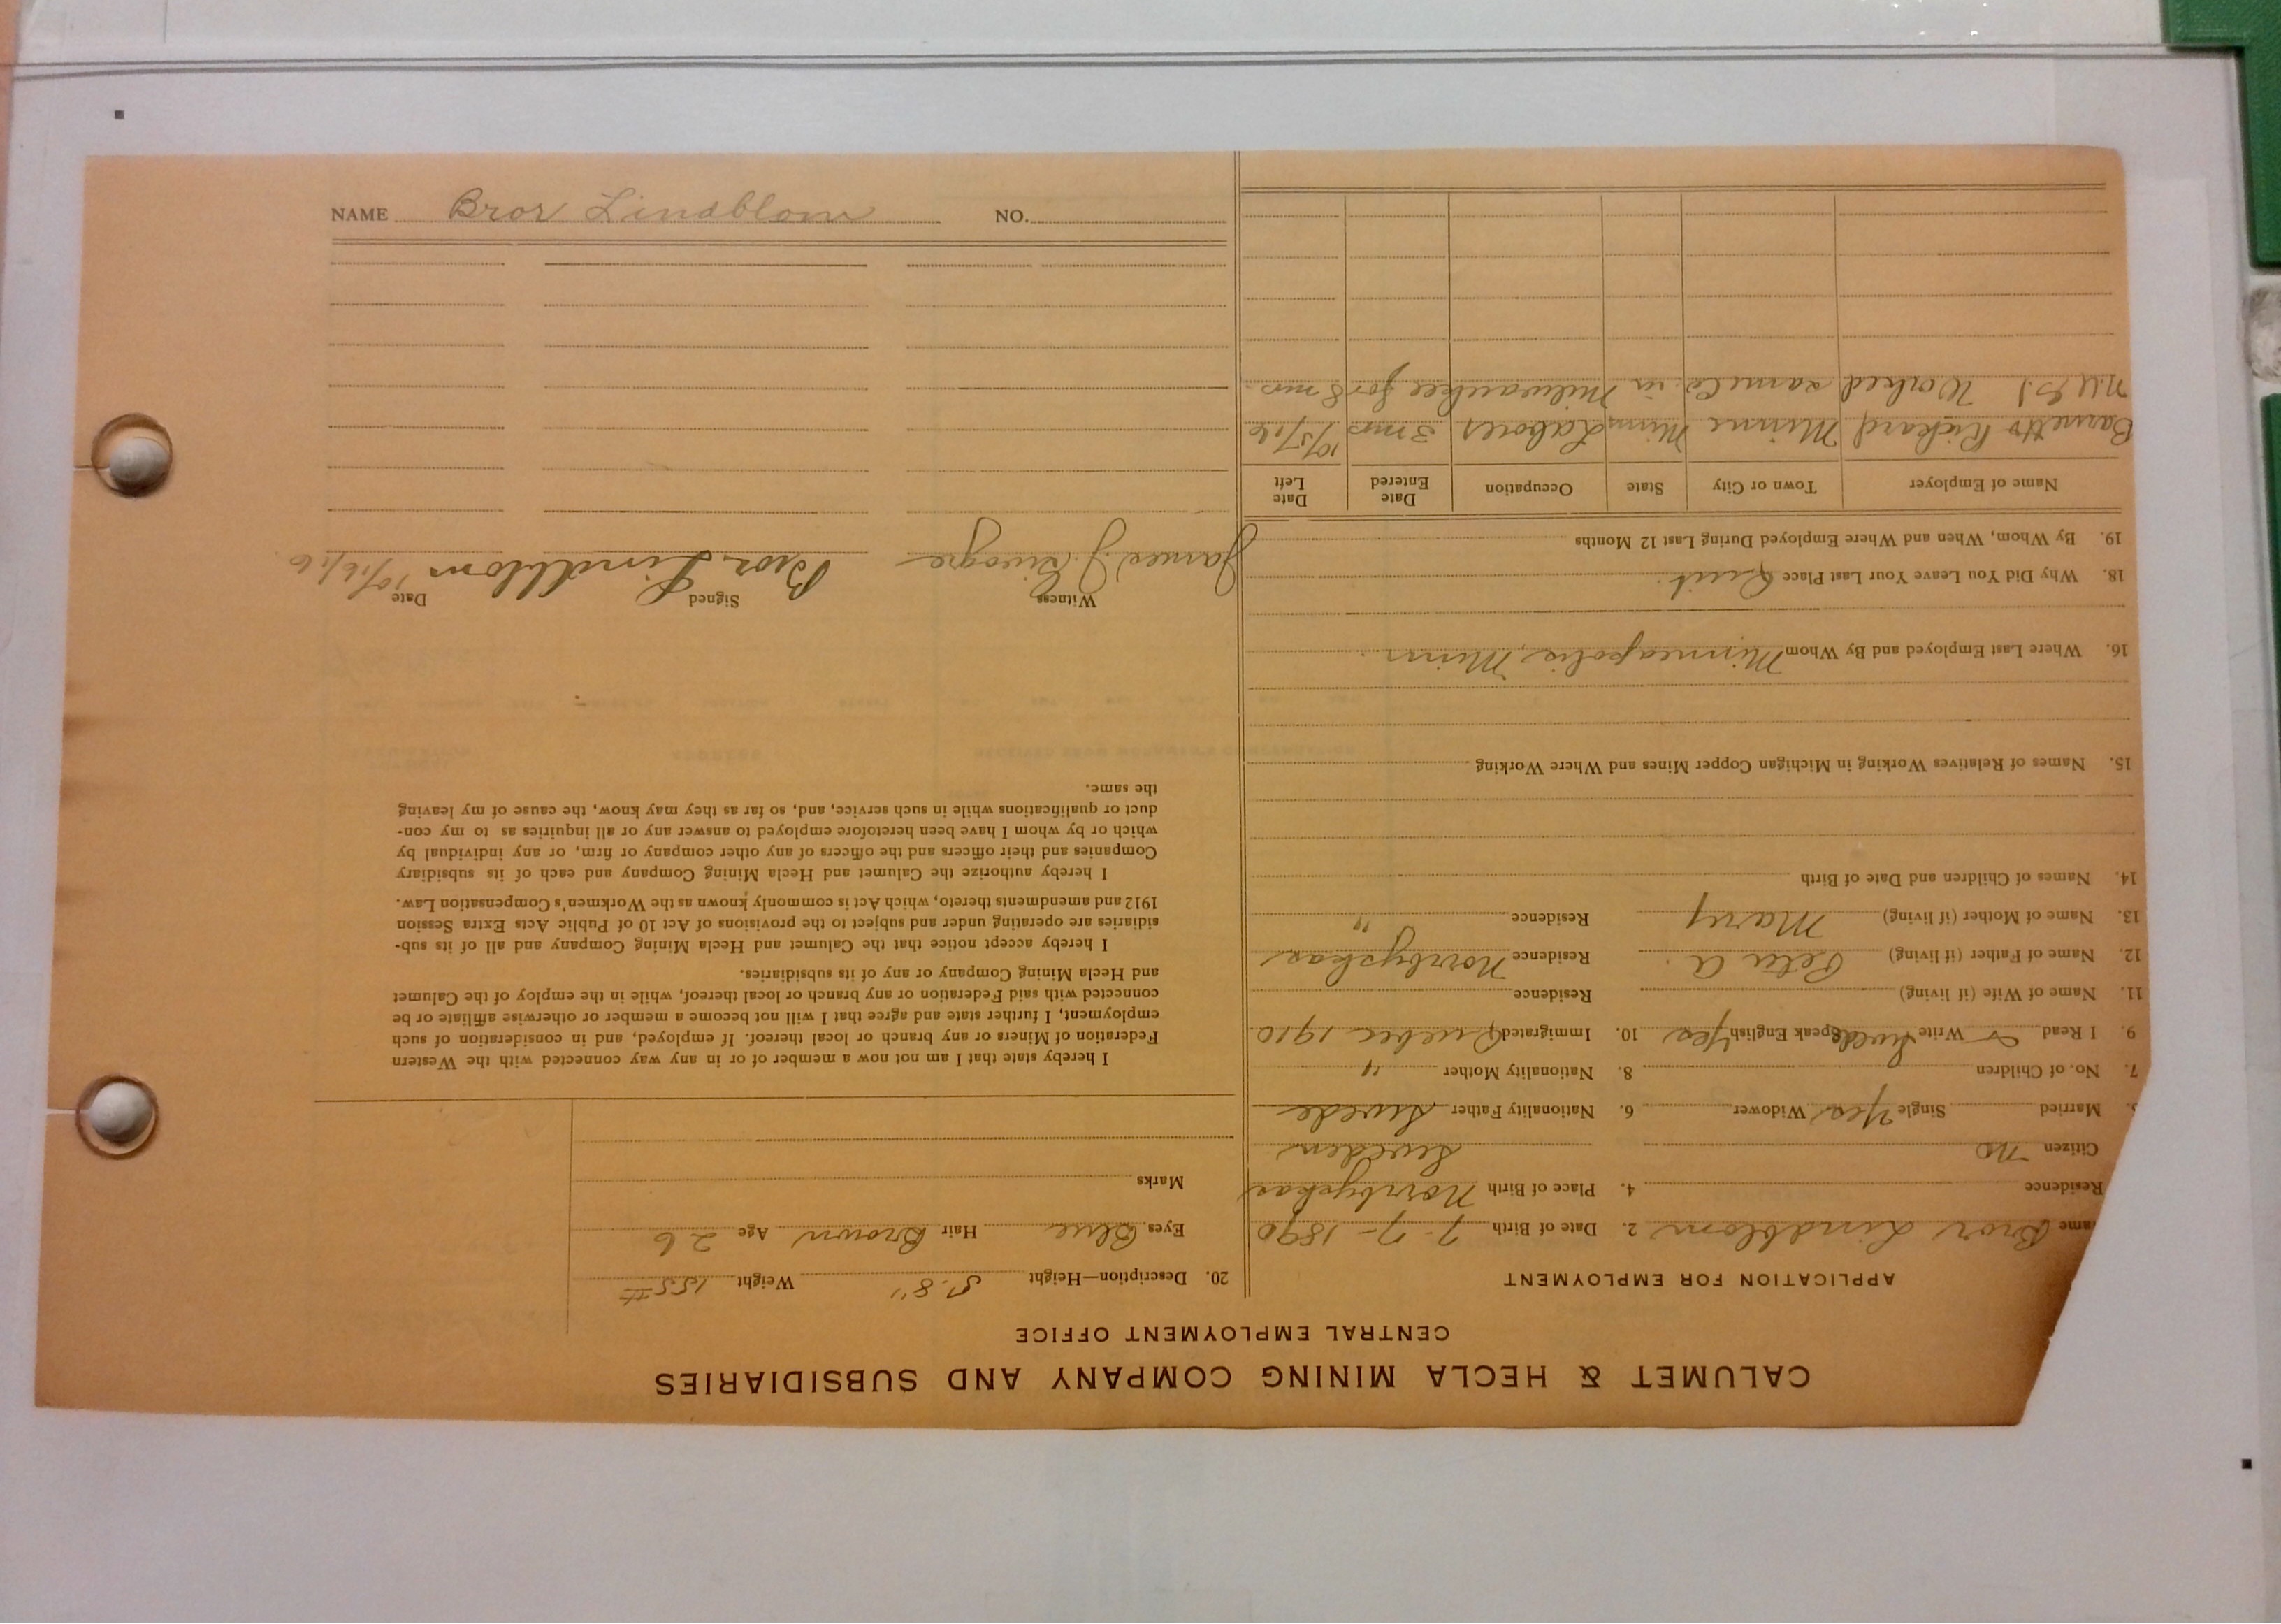 CALUMET & HECLA MINING COMPANY AND SUBSIDIARIES
CENTRAL EMPLOYMENT OFFICE
APPLICATION FOR EMPLOYMENT
ame Bror Lindblom 2. Date of Birth 7-7-1890
Residence 4. Place of Birth Norrbyskar
Citizen No Sweden
Married Single Yes Widower 6. Nationality Father Swede
7. No. of Children 8. Nationality Mother "
9. I Read Write Swede Speak English Yes 10. Immigrated Quebec 1910
11. Name of Wife (if living) Residence
12. Name of Father (if living) Peter A. Residence Norrbyskar
13. Name of Mother (if living) Mary Residence "
14. Names of Children and Date of Birth
15. Names of Relatives Working in Michigan Copper Mines and Where Working
16. Where Last Employed and By Whom Minneapolis, Minn.
18. Why Did You Leave Your Last Place Quit.
19. By Whom, When and Where Employed During Last 12 Months
Name of Employer Town or City State Occupation Date Entered Date Left
Barnett & Rickard Minne Minn Laborer 3 mos 10/5/16
Worked same Co. in Milwaukee for 8 mos.
20. Description—Height 5-8" Weight 155#
Eyes Blue Hair Brown Age 26
Marks
I hereby state that I am not now a member of or in any way connected with the Western
Federation of Miners or any branch or local thereof. If employed, and in consideration of such
employment, I further state and agree that I will not become a member or otherwise affiliate or be
connected with said Federation or any branch or local thereof, while in the employ of the Calumet
and Hecla Mining Company or any of its subsidiaries.
I hereby accept notice that the Calumet and Hecla Mining Company and all of its sub-
sidiaries are operating under and subject to the provisions of Act 10 of Public Acts Extra Session
1912 and amendments thereto, which Act is commonly known as the Workmen's Compensation Law.
I hereby authorize the Calumet and Hecla Mining Company and each of its subsidiary
Companies and their officers and the officers of any other company or firm, or any individual by
which or by whom I have been heretofore employed to answer any or all inquiries as to my con-
duct or qualifications while in such service, and, so far as they may know, the cause of my leaving
the same.
Witness Signed Date
James J. Bror Lindblom 10/16/16
NAME Bror Lindblom NO.